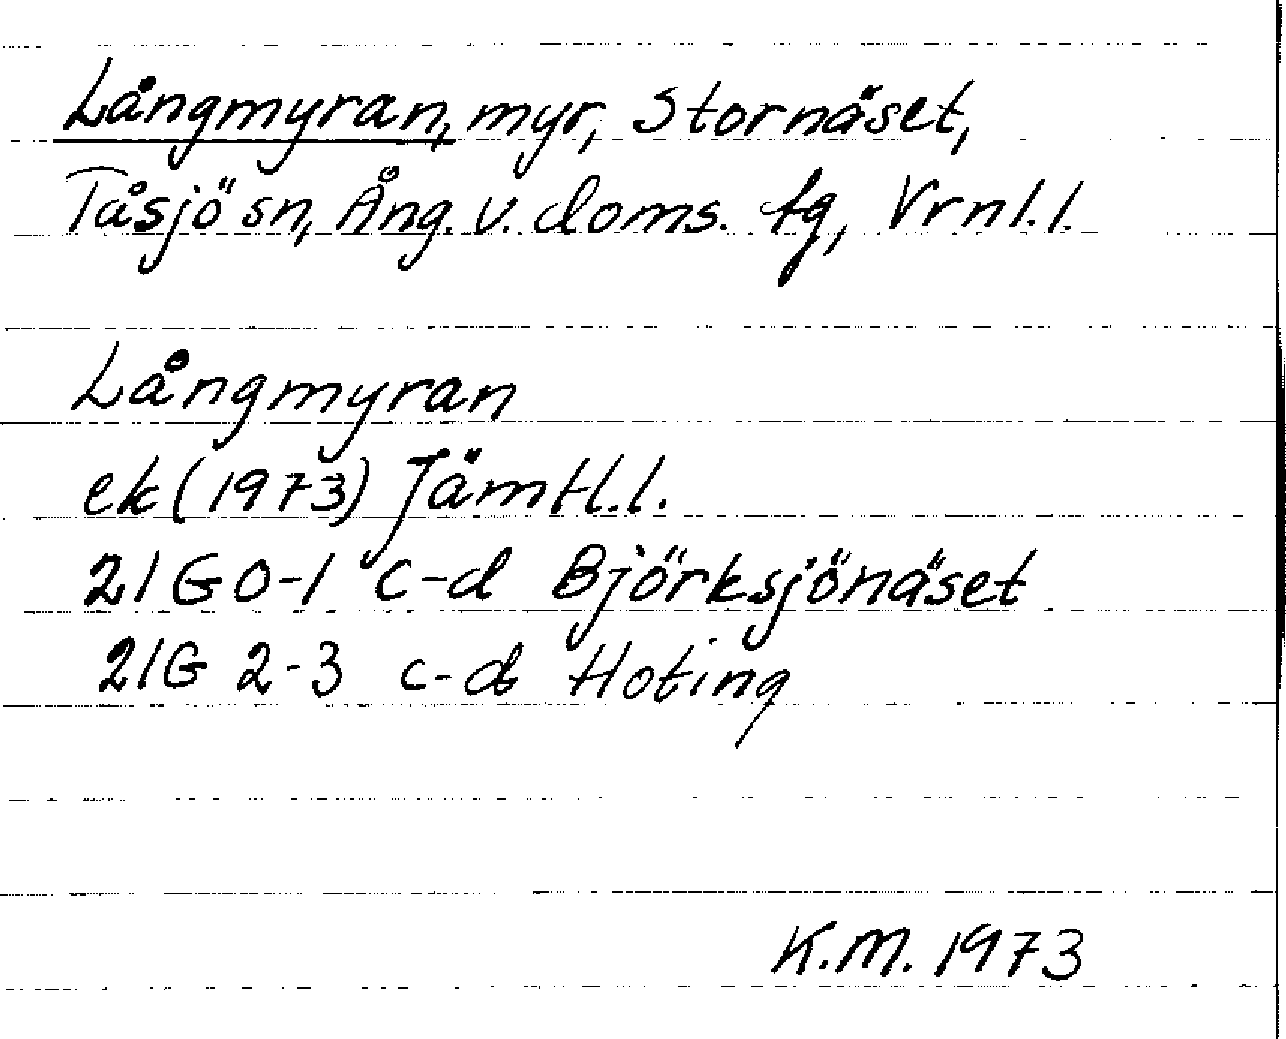 Långmyran, myr, Stornäset,
Tåsjö sn, Ång. v. doms. fg, Vrnl.l.
Långmyran
ek (1973) Jämtl.l.
21G 0-1 c-d Björksjönäset
21G 2-3 c-d Hoting
K.M. 1973